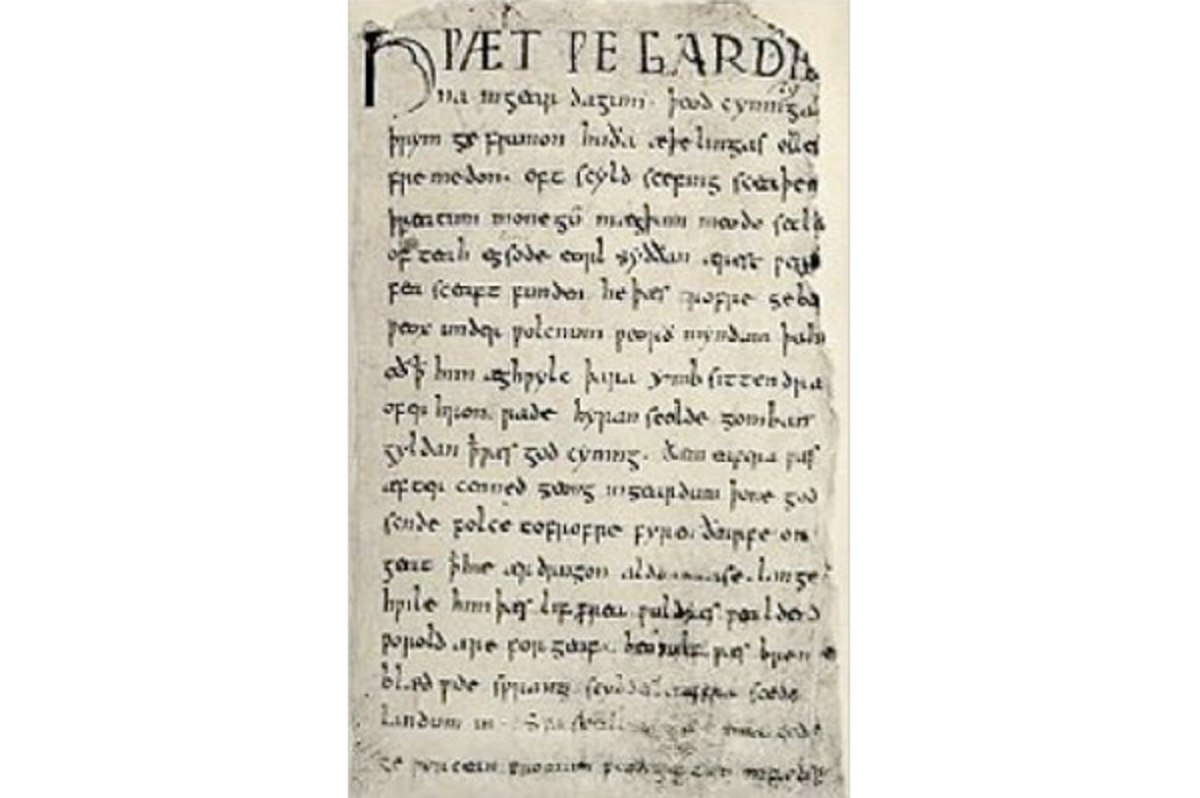 HǷÆT ǷE GARDE
na ingear dagum. þeod cyninga
þrym ge frunon huða æþelingas elle
fremedon. oft scyld scefing sceaþen
þreatum monegū mægþum meodo setla
of teah egsode eorl syððan ærest ƿearð
fea sceaft funden he þæs frofre geba
ƿeox under ƿolcnum ƿeorð myndum þah
oð ꝥ him æghƿylc þara ymb sittendra
ofer hron rade hyran scolde gomban
gyldan ꝥ ƿæs god cyning. ðæm eafera ƿæs
æfter cenned geong ingeardum þone god
sende folce tofrofre fyren ðearfe on
geat ꝥ hie ær drugon aldor ase. lange
hƿile him þæs lif frea ƿuldres ƿealdend
ƿorold are for geaf. beoƿulf ƿæs breme
blæd ƿide sprang scyldes eafera scede
landum in